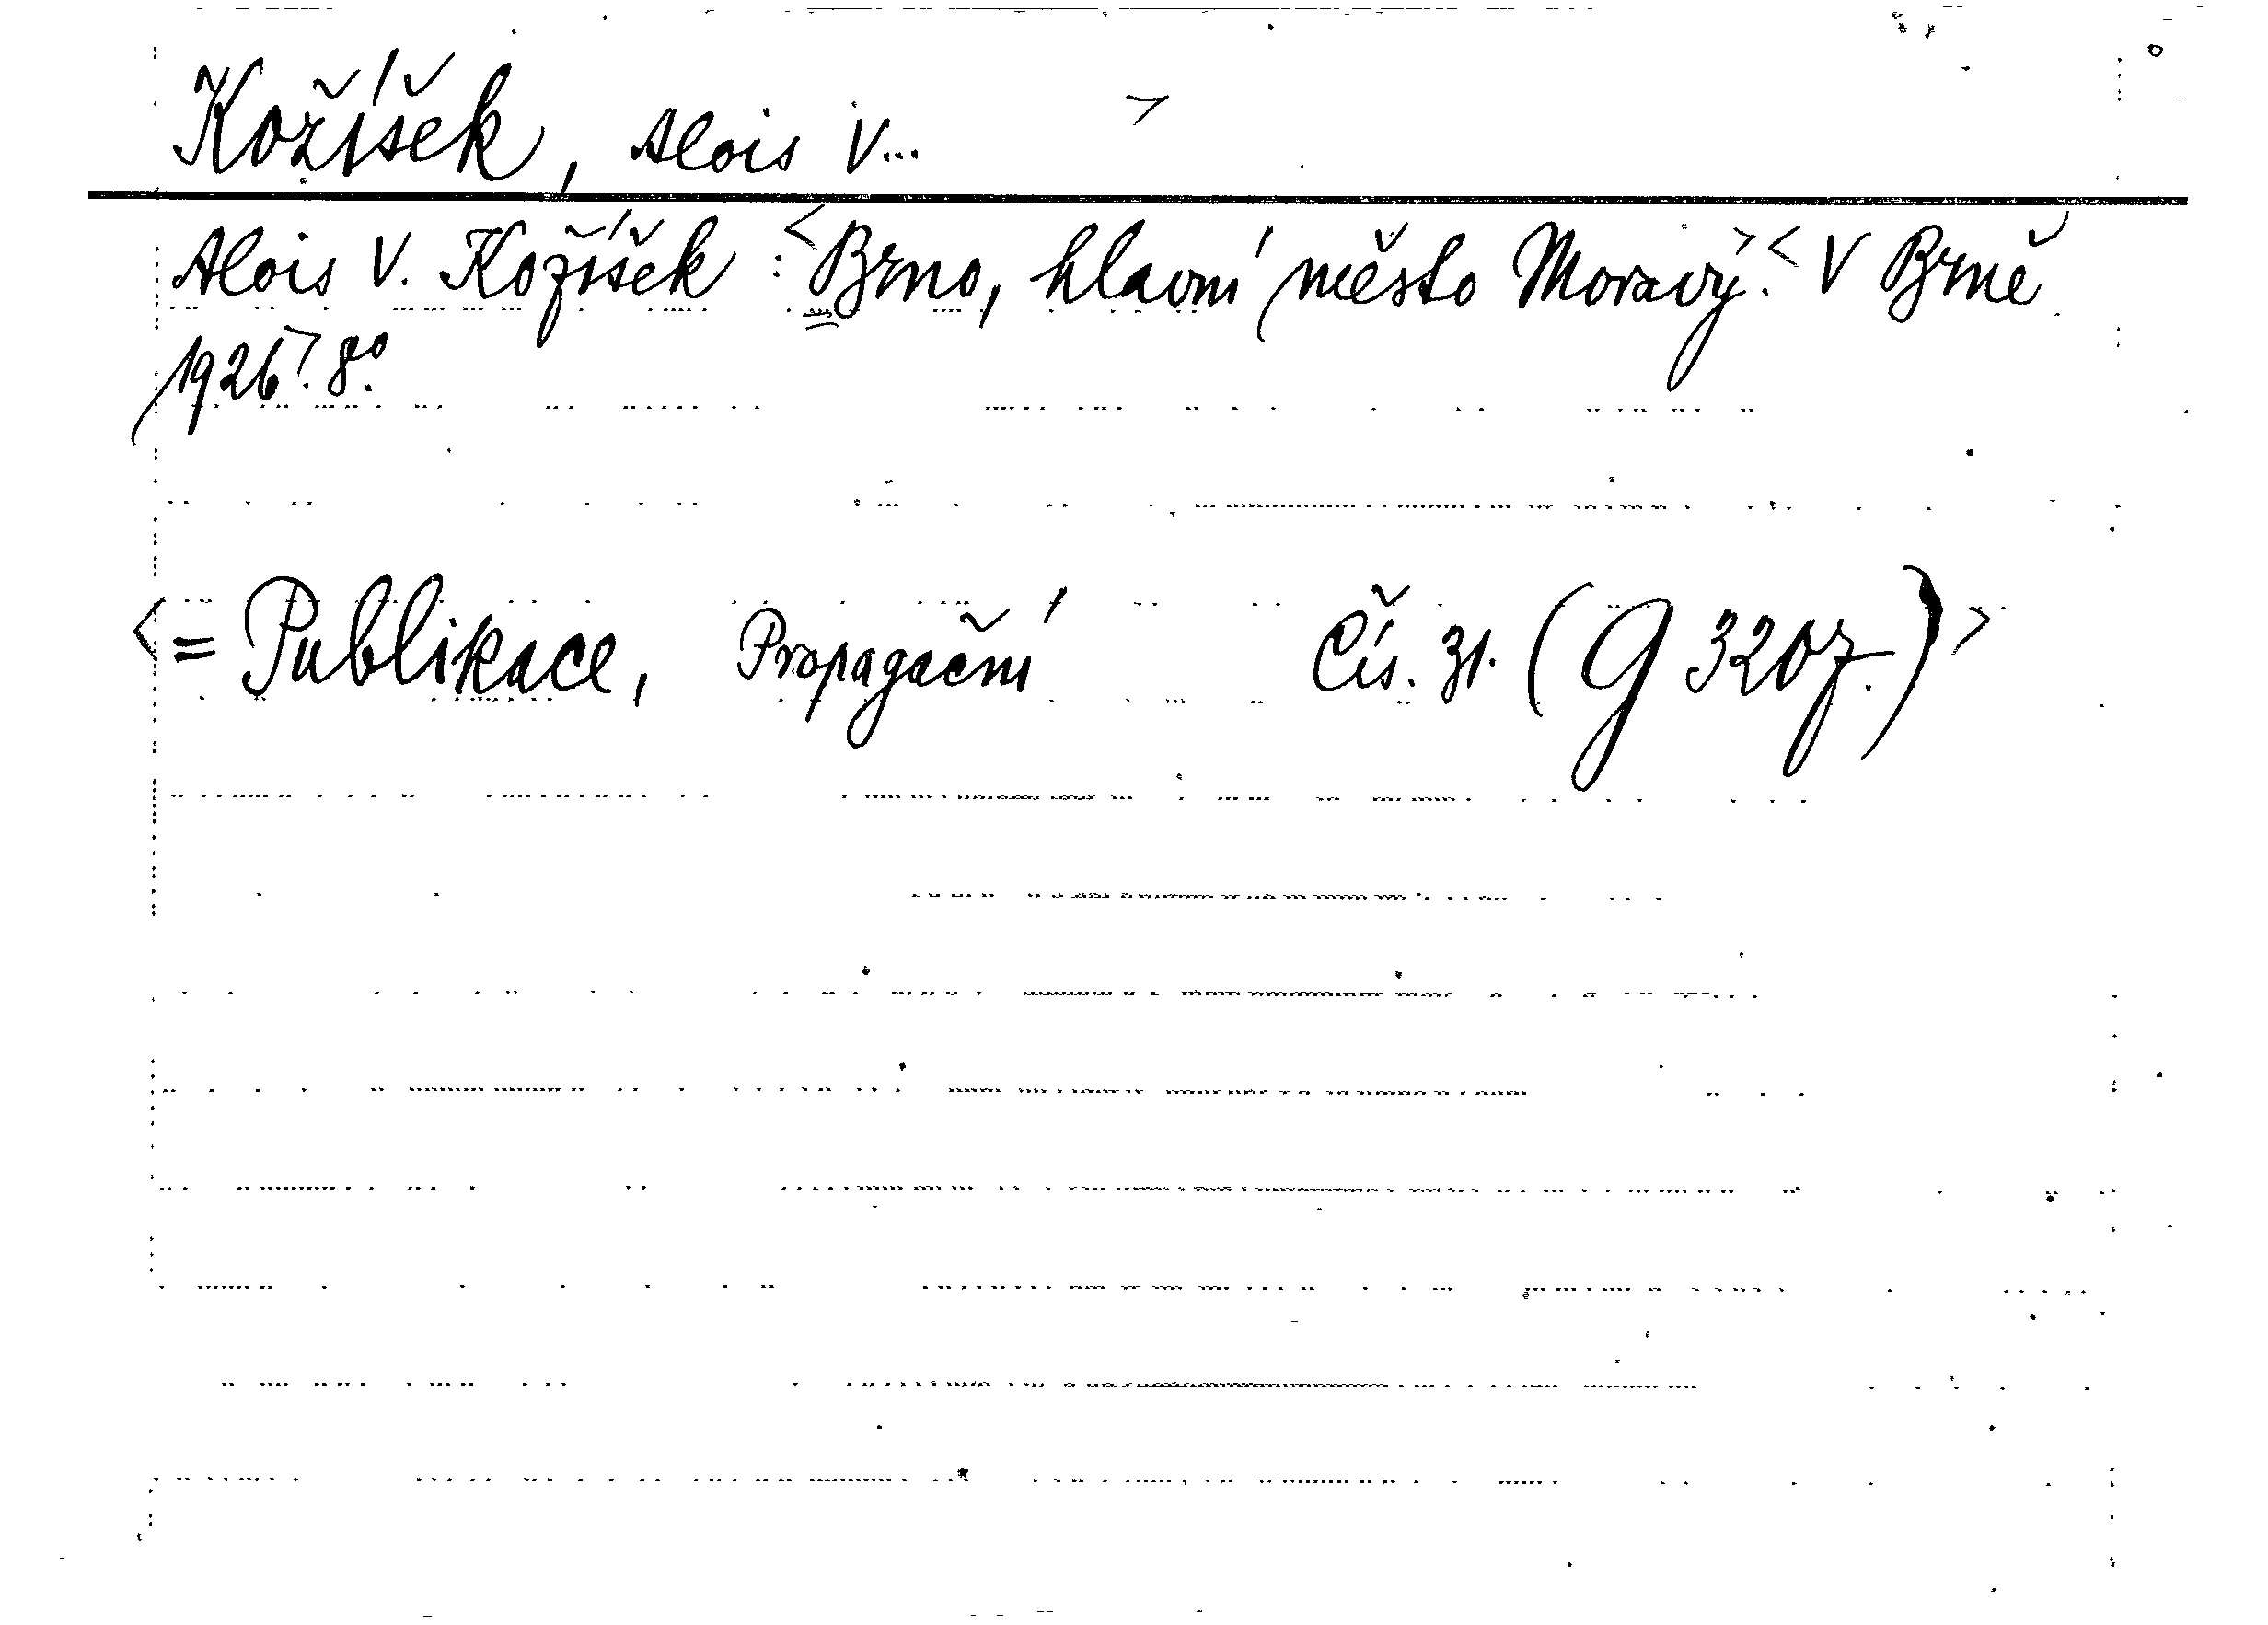 Kožíšek, Alois V... >
Alois V. Kožíšek : <Brno, hlavní město Moravy.>< V Brně
1926>. 8o.
<= Publikace, Propagační Čís. 31. (G 320z.)>